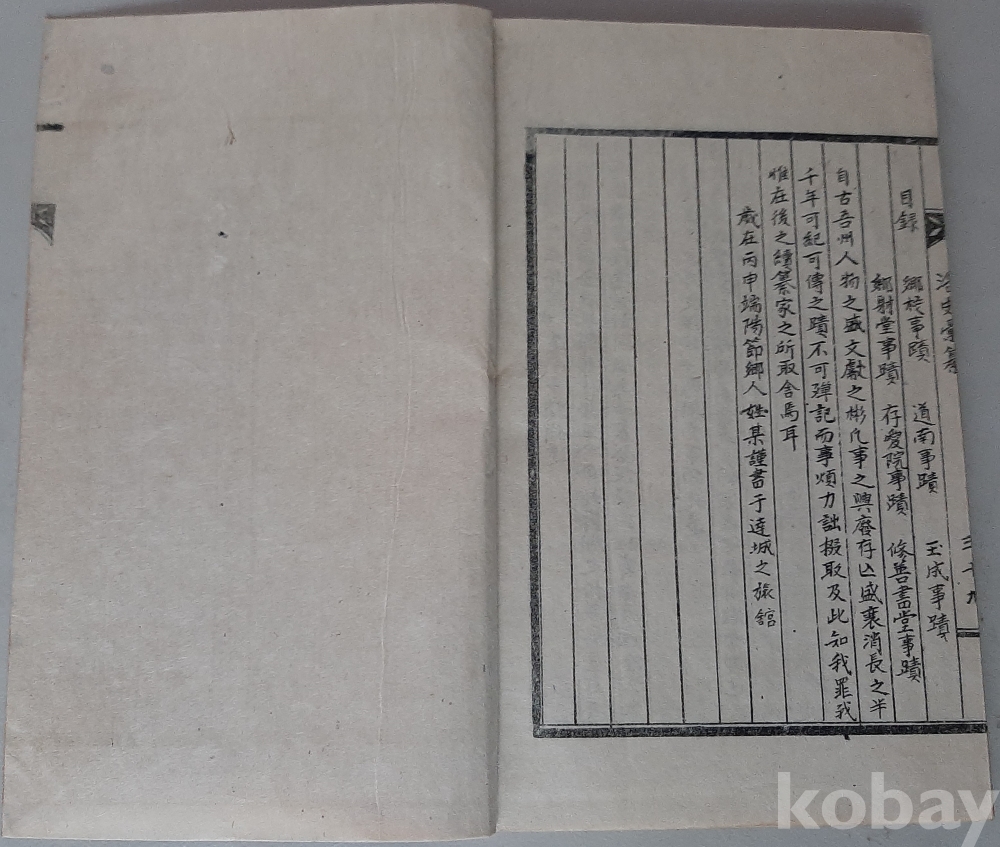 洛史彙纂
三十九
目錄 鄕校事蹟 道南事蹟 玉成事蹟
鄕射堂事蹟 存愛院事蹟 修善書堂事蹟
自古吾州人物之盛文獻之彬凡事之興廢存亡盛衰消長之半
千年可紀可傳之蹟不可殫記而事煩力詘掇取及此知我罪我
惟在後之續纂家之所取舍焉耳
歲在丙申端陽節鄕人姓某謹書于達城之旅舘
kobay